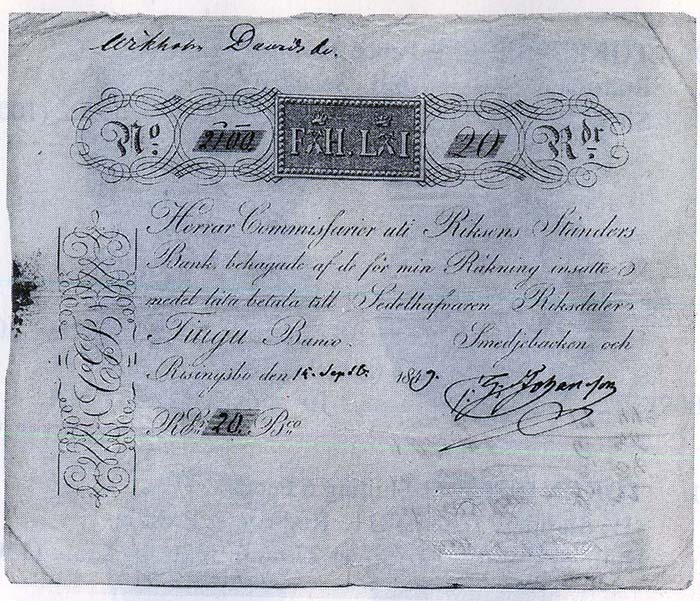 Wikholm Dawids
No 2100 F H. L I 20 Rdr
Herrar Commissarier uti Riksens Ständers
Bank, behagade af de för min Räkning insatte
medel låta betala till Sedelhafvaren Riksdaler
Tjugu Banco. Smedjebacken och
Risingsbo den 15 Sept 1849.
J. Johansson
RDr 20. Bco